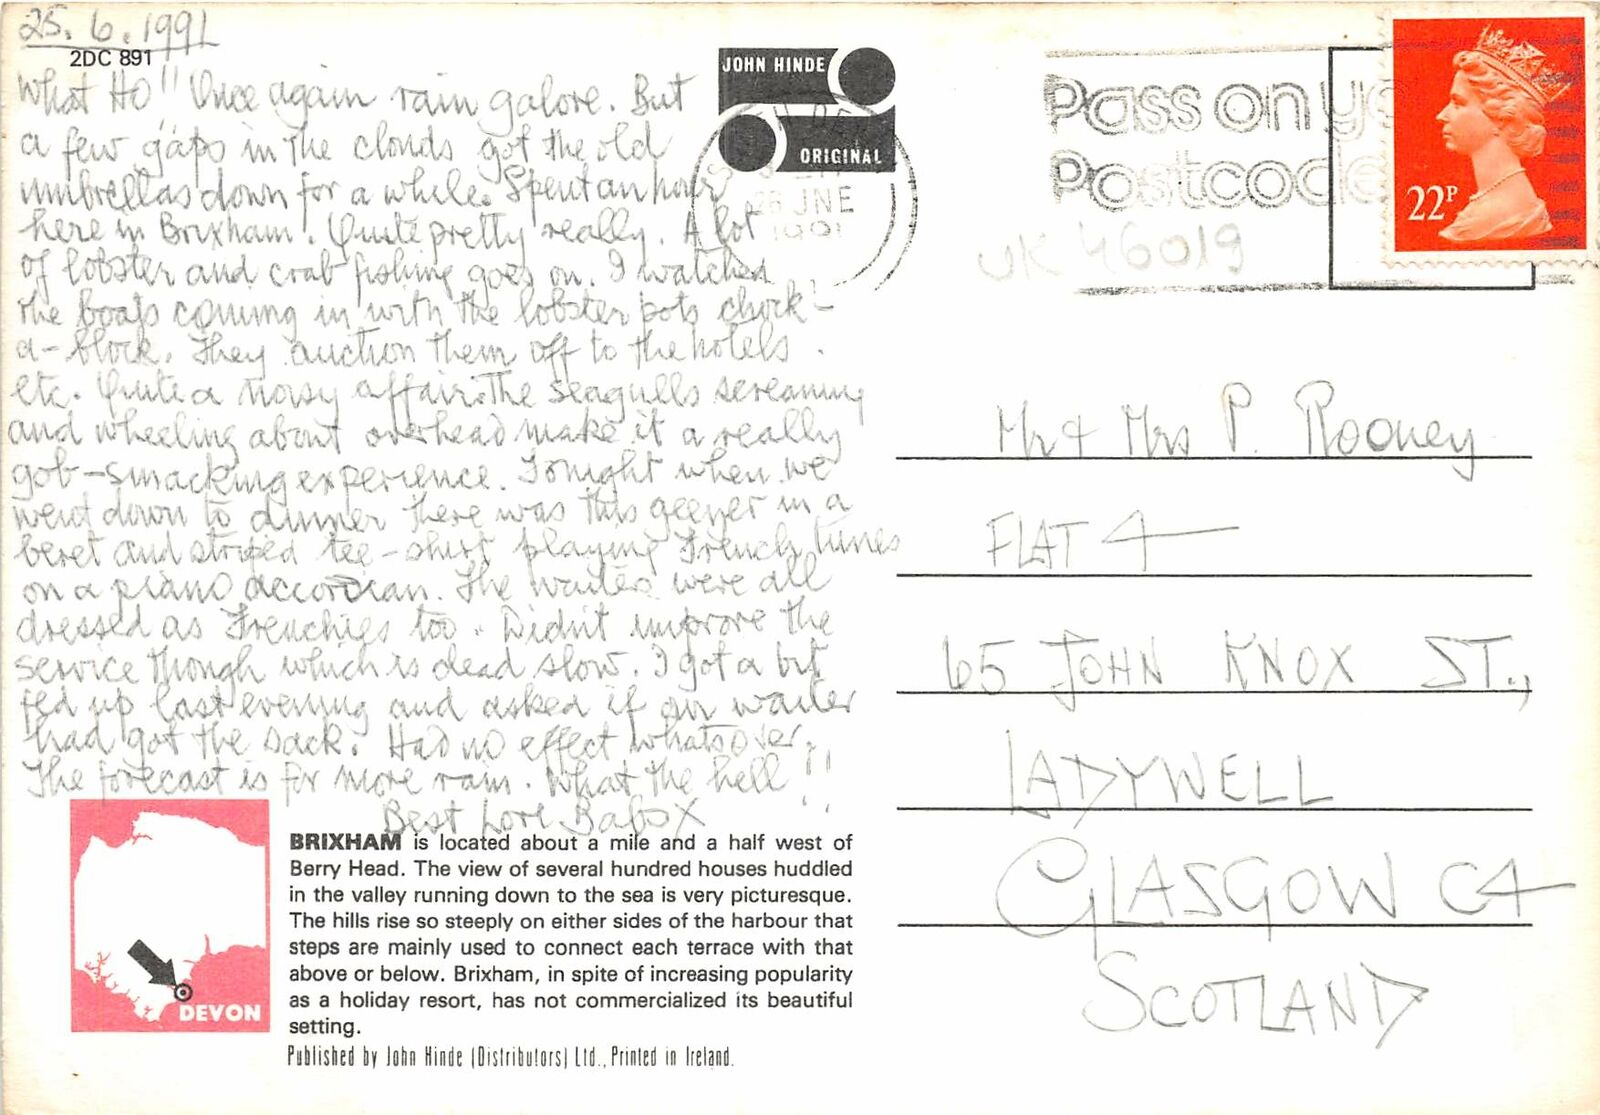 25.6.1991
2DC 891
What Ho!! Once again rain galore. But
a few gaps in the clouds got the old
umbrellas down for a while. Spent an hour
here in Brixham. Quite pretty really. A lot
of lobster and crab fishing goes on. I watched
the boats coming in with the lobster pots chock-
a-block. They auction them off to the hotels
etc. Quite a noisy affair. The seagulls screaming
and wheeling about overhead make it a really
gob-smacking experience. Tonight when we
went down to dinner there was this geezer in a
beret and striped tee-shirt playing French tunes
on a piano accordian. The waiters were all
dressed as Frenchies too. Didn't improve the
service though which is dead slow. I got a bit
fed up last evening and asked if our waiter
had got the sack. Had no effect whatsoever.
The forecast is for more rain. What the hell!!
Best Love Babs X
BRIXHAM is located about a mile and a half west of
Berry Head. The view of several hundred houses huddled
in the valley running down to the sea is very picturesque.
The hills rise so steeply on either sides of the harbour that
steps are mainly used to connect each terrace with that
above or below. Brixham, in spite of increasing popularity
as a holiday resort, has not commercialized its beautiful
setting.
Published by John Hinde (Distributors) Ltd., Printed in Ireland.
DEVON
JOHN HINDE
ORIGINAL
26 JNE
1991
Pass on yo
Postcode
UK 46019
22P
Mr & Mrs P. Rooney
FLAT 4
65 JOHN KNOX ST.,
LADYWELL
GLASGOW C4
SCOTLAND